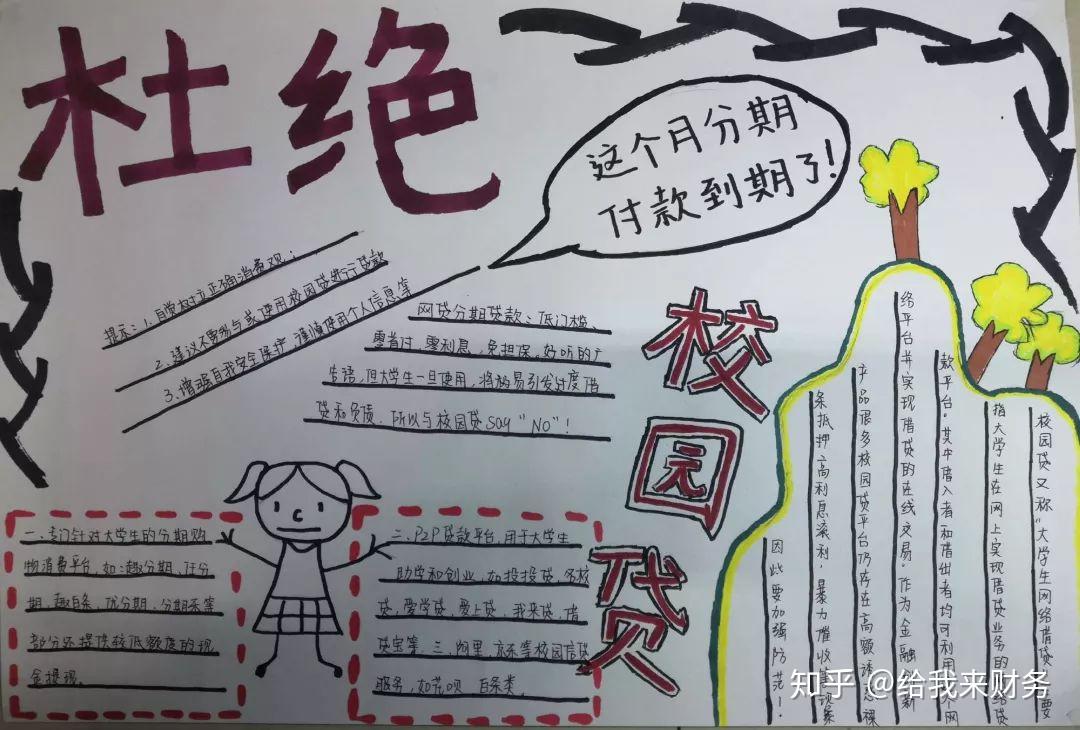 杜绝
这个月分期
付款到期了!
提示:1.自觉树立正确消费观;
2.建议不要参与或使用校园贷进行贷款
3.增强自我安全保护,谨慎使用个人信息等
网贷分期贷款:低门槛、
零首付、零利息,免担保,好听的广
告语,但大学生一旦使用,将极易引发过度借
贷和负债、所以与校园贷say“NO”!
校
园
贷
校园贷又称“大学生网络借贷”主要
指大学生在网上实现借贷业务的网络贷
款平台。其中借入者和借出者均可利用这个网
络平台并实现借贷的在线交易。作为金融创新
产品很多校园贷平台仍存在高额诱惑裸
条抵押、高利息滚利,暴力催收等现象
因此要加强防范!
二、专门针对大学生的分期购
物消费平台,如:趣分期、任分
期、趣白条、优分期、分期乐等
部分还提供较低额度的现
金提现。
三、P2P贷款平台,用于大学生
助学和创业,如投投贷、名校
贷、爱学贷、爱上贷、我来贷、借
贷宝等。三、阿里、京东等校园信贷
服务,如花呗、白条类。
知乎 @给我来财务